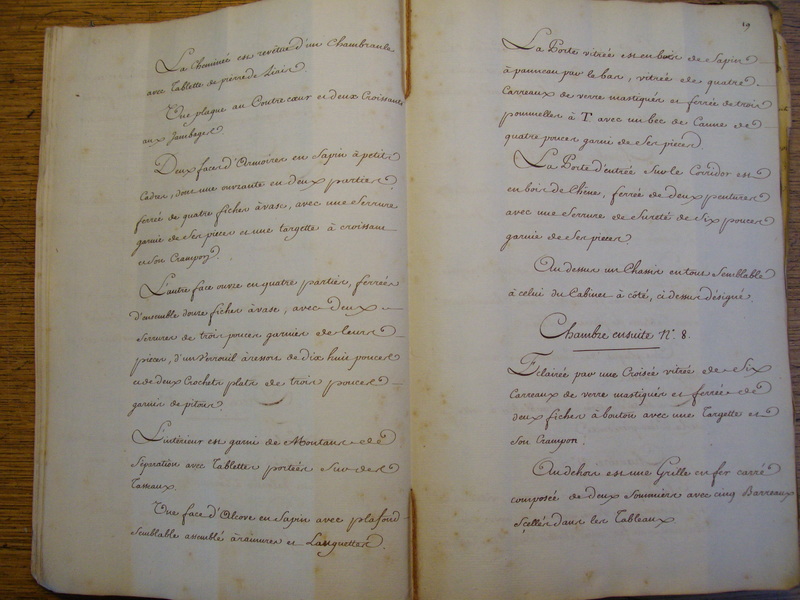 La Cheminée est revêtue d'un Chambranle
avec Tablette de pierre de Liais
Une plaque au Contre cœur et deux Croissants
aux Jambages
Deux faces d'Armoires en Sapin à petits
Cadres, dont une ouvrante en deux parties
ferrée de quatre fiches à vase, avec une Serrure
garnie de Ses pieces et une targette à croissant
et Son Crampon.
L'autre face ouvre en quatre parties, ferrées
d'ensemble douze fiches à vase, avec deux
Serrures de trois pouces garnies de leurs
pieces, d'un Verrouil à ressort de dix huit pouces
et de deux Crochets plats de trois pouces
garnis de pitons.
L'intérieur est garni de Montans de
Séparation avec Tablettes portées Sur des
Tasseaux.
Une face d'Alcove en Sapin avec plafond
Semblable assemblé à rainures et Languettes.
19
La Porte vitrée est en bois de Sapin
à panneau par le bas, vitrée de quatre
Carreaux de verre mastiqués et ferrée de trois
pommelles à T avec un bec de Canne de
quatre pouces garni de Ses pieces
La Porte d'entrée Sur le Corridor est
en bois de Chêne, ferrée de deux pentures
avec une Serrure de Sureté de Six pouces
garnie de Ses pieces
Au dessus un Chassis en tout Semblable
à celui du Cabinet à côté, ci dessus désigné.
Chambre ensuite N.° 8.
Eclairée par une Croisée vitrée de Six
Carreaux de verre mastiqués et ferrée de
deux fiches à bouton avec une Targette et
Son Crampon.
Au dehors est une Grille en fer carré
composée de deux Sommiers avec cinq Barreaux
Scellés dans les Tableaux